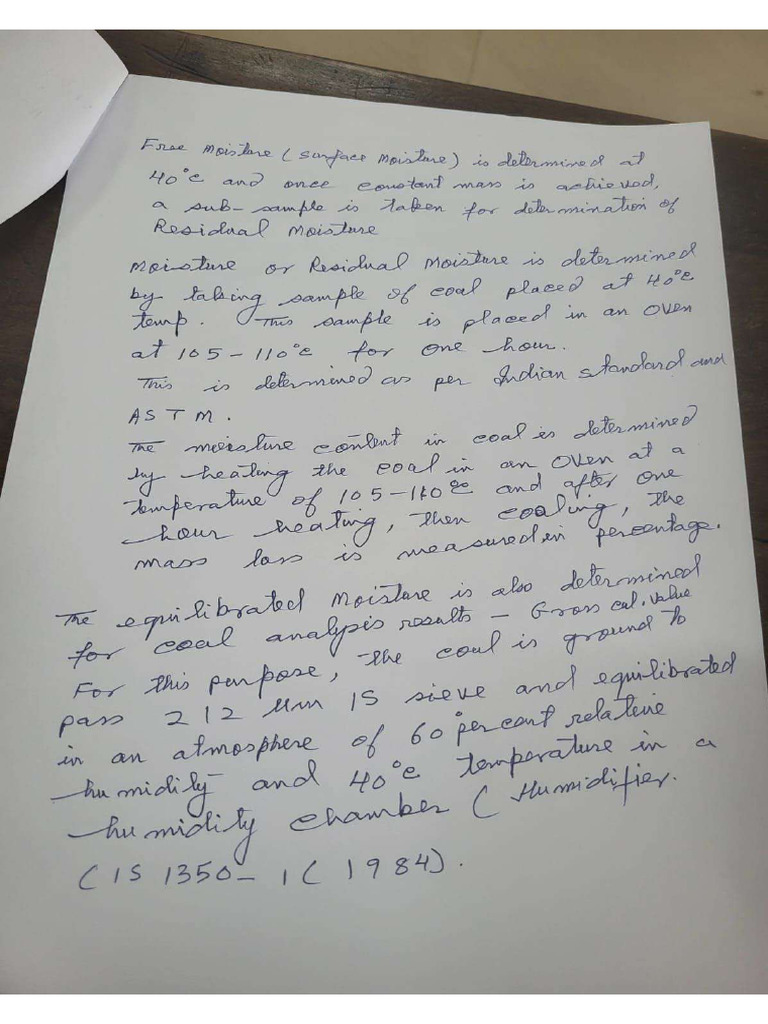 Free Moisture (Surface Moisture) is determined at
40°C and once constant mass is achieved,
a sub-sample is taken for determination of
Residual Moisture
Moisture or Residual Moisture is determined
by taking sample of coal placed at 40°C
temp. This sample is placed in an oven
at 105-110°C for one hour.
This is determined as per Indian standard and
ASTM.
The moisture content in coal is determined
by heating the coal in an oven at a
temperature of 105-110°C and after one
hour heating, then cooling, the
mass loss is measured in percentage.
The equilibrated moisture is also determined
for coal analysis results - Gross cal. value
For this purpose, the coal is ground to
pass 212 μm IS sieve and equilibrated
in an atmosphere of 60 percent relative
humidity and 40°C temperature in a
humidity chamber (Humidifier.
(IS 1350-1 (1984).